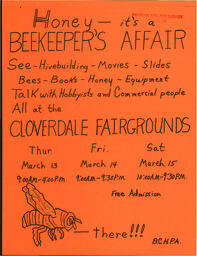 Honey — it's a
BEEKEEPER'S AFFAIR
See - Hivebuilding - Movies - Slides
Bees - Books - Honey - Equipment
Talk with Hobbyists and Commercial people
All at the
CLOVERDALE FAIRGROUNDS
Thur Fri. Sat
March 13 March 14 March 15
9:00A.M-9:00P.M. 9:00A.M-9:30P.M. 10:00A.M-9:30P.M.
Free Admission
— there!!!
B.C.H.P.A.